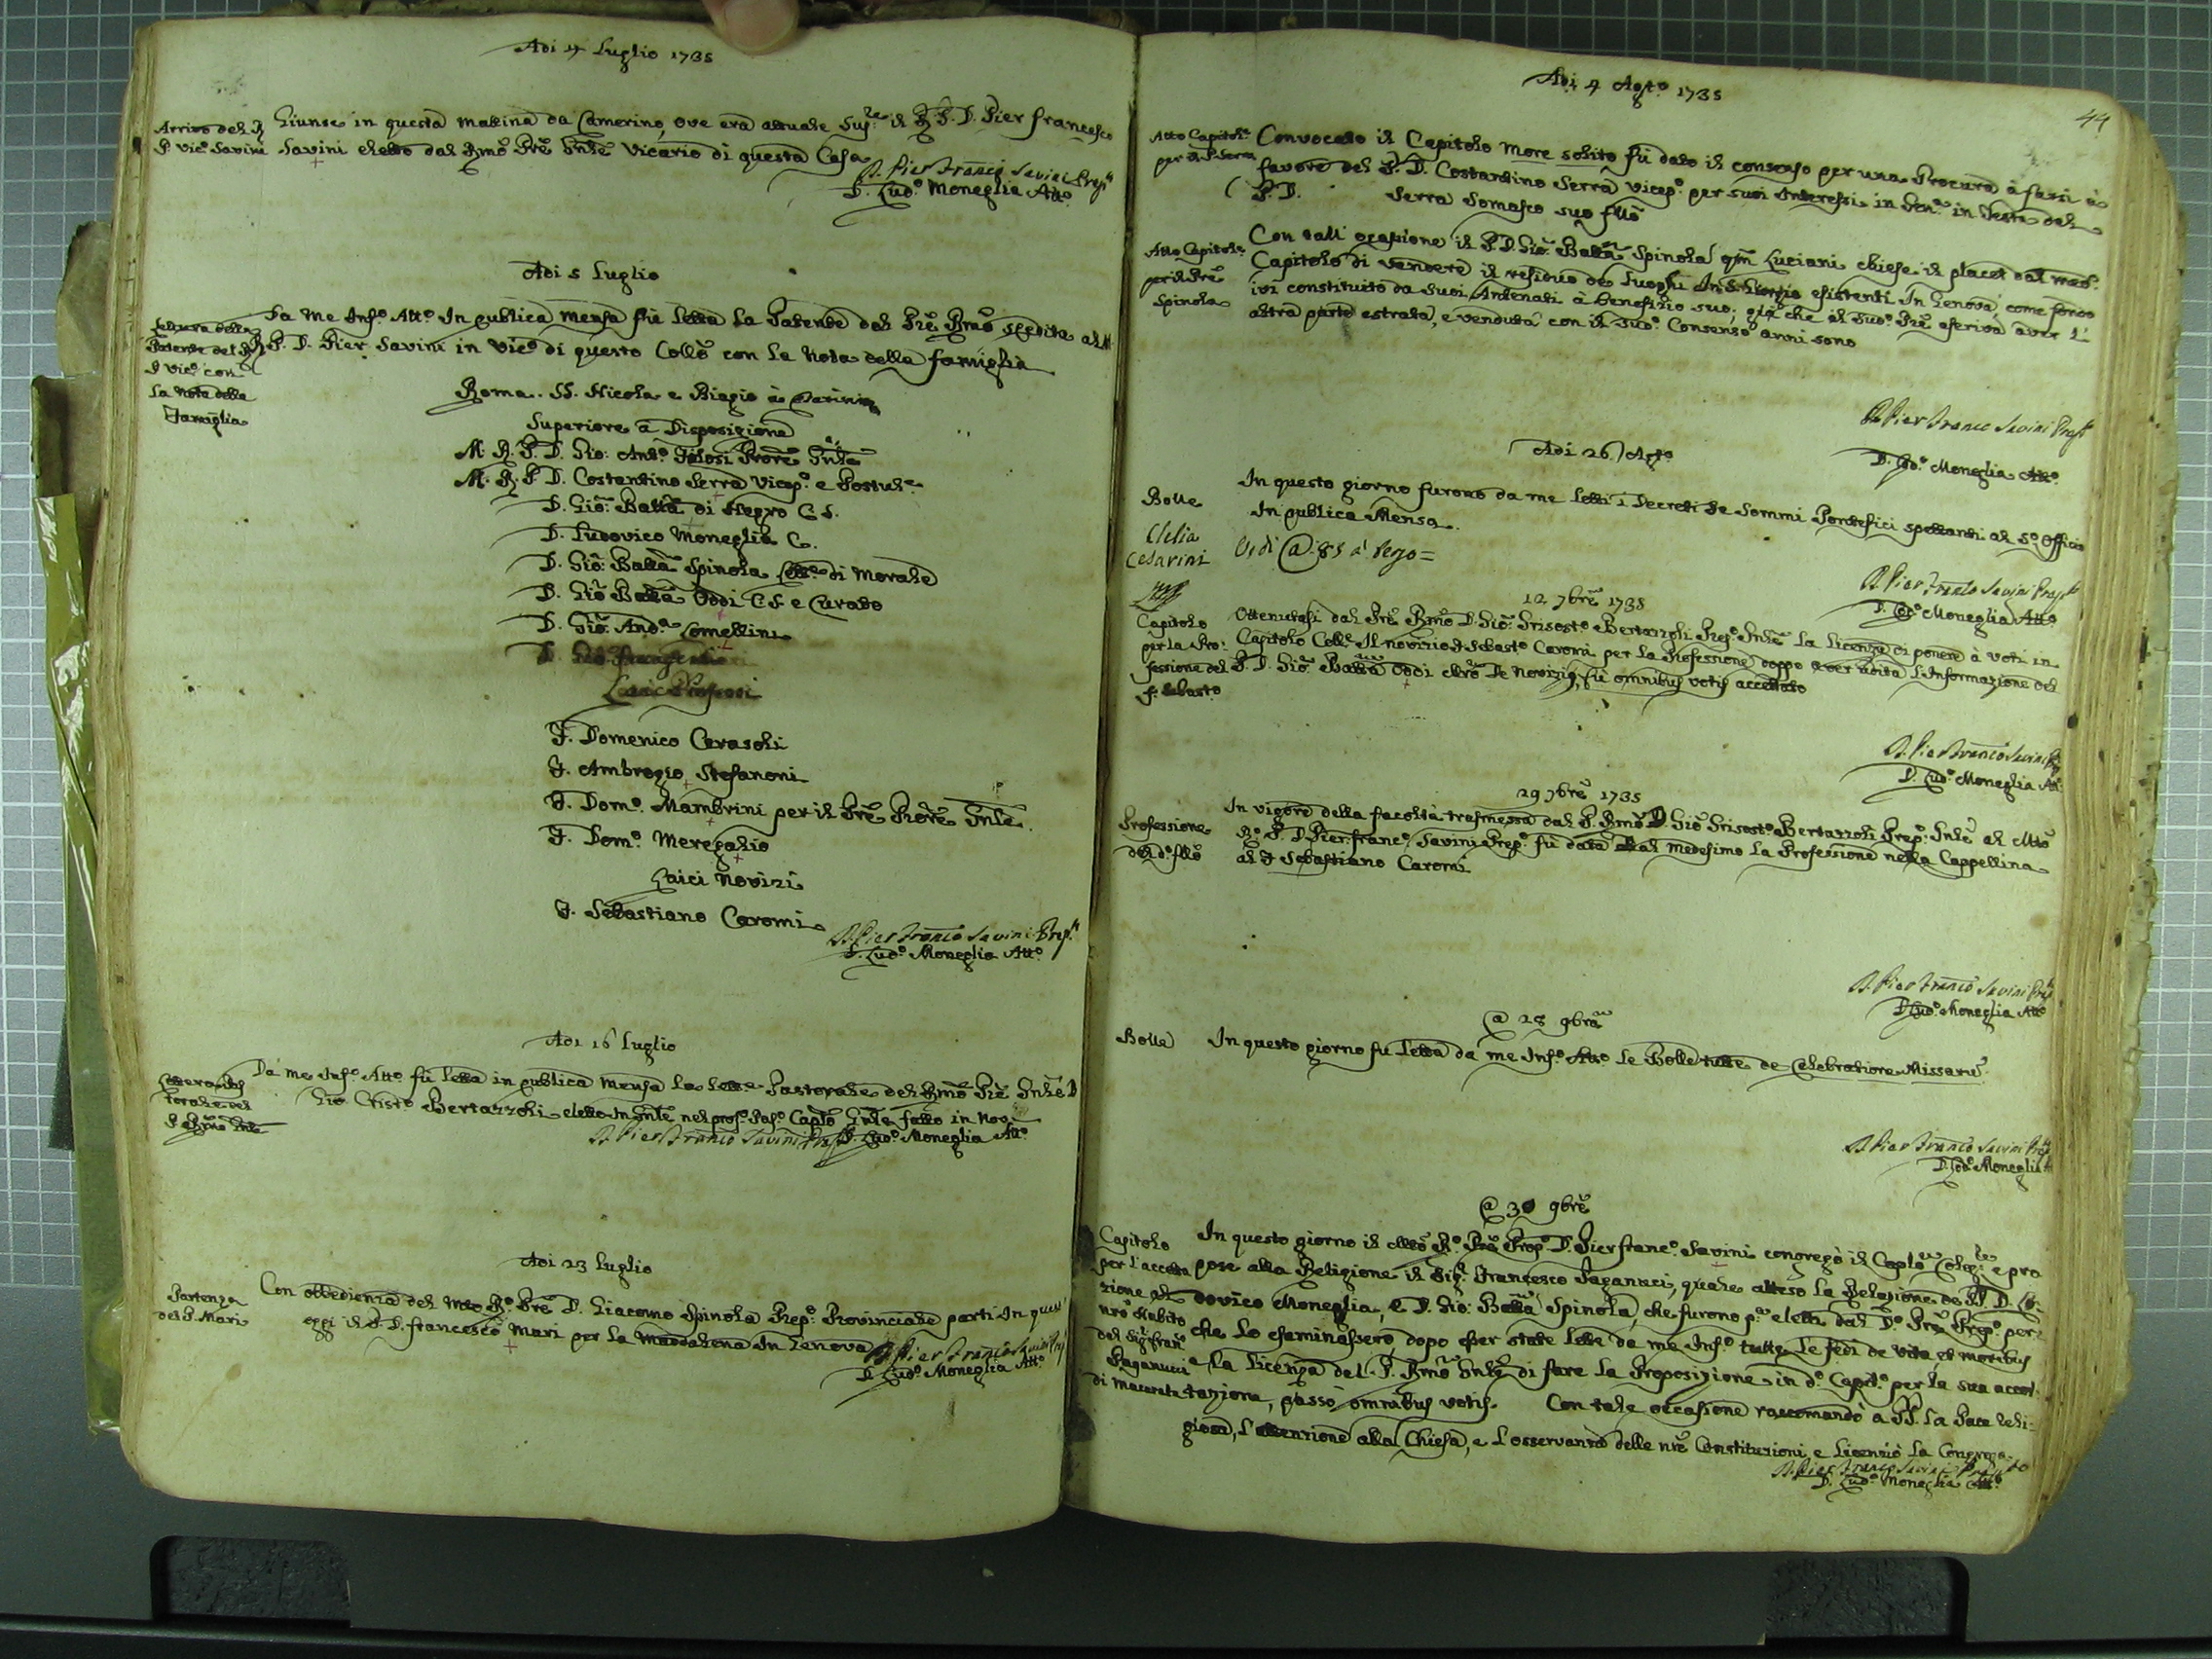 Adi 4 Luglio 1735
Arrivo del P.
P. Vic.º Savini
Giunse in questa mattina da Camerino, ove era attuale Sup.re il P. D. Pier Francesco
Savini eletto dal Rmo Pre Gnle Vicario di questa Casa
D. Pier Franco Savini Prep.to
D. Lud.º Moneglia Att.º
Adi 5 Luglio
Lettura della
Patente del
P Vic.º con
La Nota della
Famiglia
Da me Inf.º Att.º In publica mensa fù letta La Patente del Pre Rmo spedita al M.
R. P. D. Pier Savini in Vic.º di questo Collº con La Nota della famiglia
Roma. SS. Nicola e Biagio à Cesarini
Superiore a Disposizione
M. R. P. D. Gio: Ant.º Prore Gnle
M. R. P. D. Costantino Serra Vicep.º e Postul.e
D. Gio: Batta di Negro C. S.
D. Ludovico Moneglia C.
D. Gio: Batta Spinola Lett.e di Morale
D. Gio Batta Oddi C. S. e Curato
D. Gio: And.a Lomellini
D. Gio:
Laici Professi
F. Domenico Cerasoli
F. Ambrogio Stefanoni
F. Dom.º Mambrini per il Pre Prore Gnle.
F. Dom.º Meregalio
Laici Novizi
F. Sebastiano Caromi
D. Pier Franco Savini Prep.to
D. Lud.º Moneglia Att.º
Adi 16 Luglio
Lettera Pas
torale del
P. Rmo Gnle
Da me Inf.º Att.º fù letta in publica mensa la lett.a Pastorale del Rmo Pre Gnle D
Gio Crist.º Bertazzoli eletto In Gnle nel pros.º Pas.º Caplo Gnle fatto in Nov.
D. Pier Franco Savini Prep.to D. Lud.º Moneglia Att.º
Adi 23 Luglio
Partenza
del P. Mari
Con obbedienza del Mto R.º Pre D. Giacomo Spinola Prep.º Provinciale parti In quest'
oggi il P. D. Francesco Mari per la Maddalena In Genova
D. Pier Franco Savini Prep
D. Lud.º Moneglia Att.º
44
Adi 4 Agt.º 1735
Atto Capitol.e
per il P. Serra
Convocato il Capitolo more solito fù dato il consenso per una Procura à farsi à
favore del P. D. Costantino Serra Vicep.º per suoi Interessi in Gen.a in Testa del
P. D. Serra Somasco suo fllo
Atto Capitol.e
per il Pre
Spinola
Con tall' ocasione il P. D. Gio: Batta Spinola qm Luciani chiese il placet dal med.º
Capitolo di vendere il residuo de Luoghi In S. Giorgio esistenti In Genova, come fondo
ivi constituito da suoi Antenati à beneficio suo; già che il sud.º Pre aseriva aver l'
altra parte estrata, e venduta con il sud.º Consenso anni sono
D. Pier Franco Savini Prep.to
D. Lud.º Moneglia Att.º
Adi 26 Agt.º
Bolle
In questo giorno furono da me letti i Decreti de Sommi Pontefici spettanti al S.º Officio
In publica Mensa.
Clelia
Cesarini
Vedi @ 85 a tergo =
12 7bre 1735
D. Pier Franco Savini Prep.to
D. Lud.º Moneglia Att.º
Capitolo
per la Pro:
fessione del
F. Sebast.º
Ottenutasi dal Pre Rmo D. Gio: Grisost.º Bertazzoli Prep.º Gnle La Licenza di ponere à voti in
Capitolo Coll.e Il novizio F. Sebast.º Caromi per La Professione doppo aver udita L'Informazione del
P. D. Gio: Batta Oddi Mro De Novizij, fù omnibus votis accettato
D. Pier Franco Savini Pre
D. Lud.º Moneglia Att.º
29 7bre 1735
Professione
del d.º fllo
In vigore della facoltà trasmessa dal P. Rmo D. Gio: Grisost.º Bertazzoli Prep.º Gnle al Mto
R.º P. D. Pier: franc.º Savini Prep.º fù data dal medesimo La Professione nella Cappellina
al F Sebastiano Caromi
D. Pier Franco Savini Prep
D. Lud.º Moneglia Att.º
@ 28 9bre
Bolle
In questo giorno fu letta da me Inf.º Att.º Le Bolle tutte de Celebratione Missaru.
D. Pier Franco Savini Prep
D. Lud.º Moneglia
@ 30 9bre
Capitolo
per l'accetta
zione al
nro Habito
del Sig.r Fran.º
Paganucci
di Macerata
In questo giorno il Mto R.º Pre Prep.º D. Pier franc.º Savini congregò il Caplo Coleg.le e pro
pose alla Religione il Sig.r Francesco Paganucci, quale atteso La Relazione de PP. D. Lu:
dovico Moneglia, e D. Gio: Batta Spinola, che furono p.a eletti dal D.º Pre Prep.º per:
che Lo esaminassero, dopo esser state lette da me Inf.º tutte Le fedi de vita, et moribus
e La Licenza del P. Rmo Gnle di fare La Proposizione in d.º Capit.º per la sua accet:
tazione, passò omnibus votis. Con tale occasione raccomandò a PP. La Pace reli:
giosa, l'attenzione alla Chiesa, e L'osservanza delle nre Constituzioni, e Licenziò La Congrega.
D. Pier Franco Savini Prep.to
D. Lud.º Moneglia Att.º